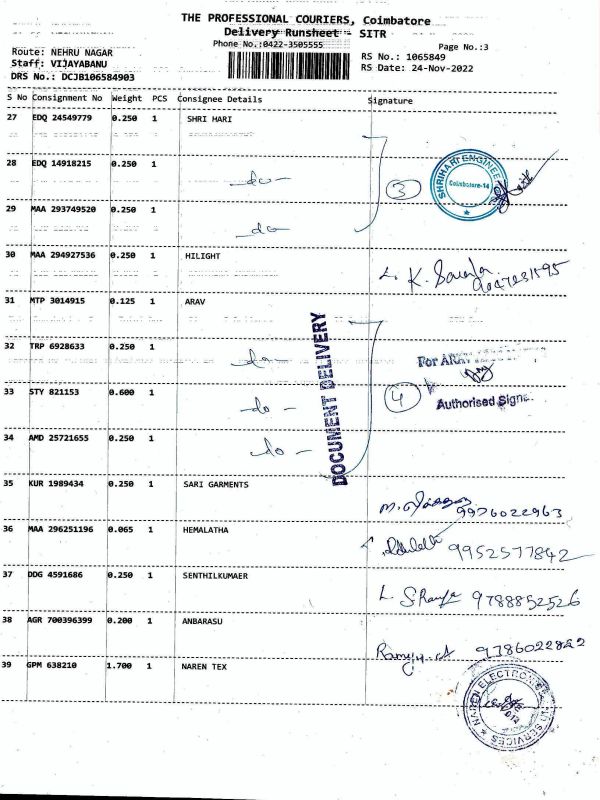 THE PROFESSIONAL COURIERS, Coimbatore
Delivery Runsheet - SITR
Phone No.:0422-3505555
Page No.:3
Route: NEHRU NAGAR
RS No.: 1065849
Staff: VIJAYABANU
RS Date: 24-Nov-2022
DRS No.: DCJB106584903
S No Consignment No Weight PCS Consignee Details Signature
27 EDQ 24549779 0.250 1 SHRI HARI
28 EDQ 14918215 0.250 1
-do-
3
SHRIHARI ENGINEE
Coimbatore-14
29 MAA 293749520 0.250 1
-do
30 MAA 294927536 0.250 1 HILIGHT
31 MTP 3014915 0.125 1 ARAV
DOCUMENT DELIVERY
32 TRP 6928633 0.250 1
-do-
For ARAV
33 STY 821153 0.600 1
-do-
4
Authorised Sign.
34 AMD 25721655 0.250 1
-do-
35 KUR 1989434 0.250 1 SARI GARMENTS
9976022963
36 MAA 296251196 0.065 1 HEMALATHA
9952577842
37 DDG 4591686 0.250 1 SENTHILKUMAER
9788852526
38 AGR 700396399 0.200 1 ANBARASU
9786022822
39 GPM 638210 1.700 1 NAREN TEX